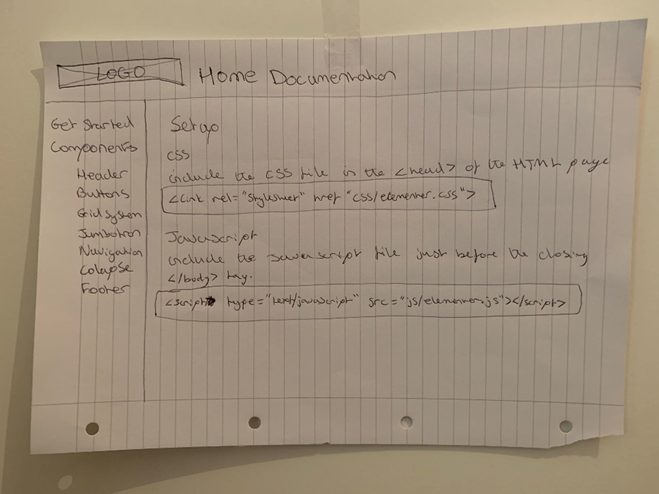 LOGO
Home Documentation
Get Started
Components
Header
Buttons
Grid system
Jumbotron
Navigation
Colapse
Footer
Setup
CSS
include the CSS file in the <head> of the HTML page
<link rel="stylesheet" href "css/elementer.css">
Javascript
include the javascript file just before the closing
</body> tag.
<script type="text/javascript" src="js/elementer.js"></script>